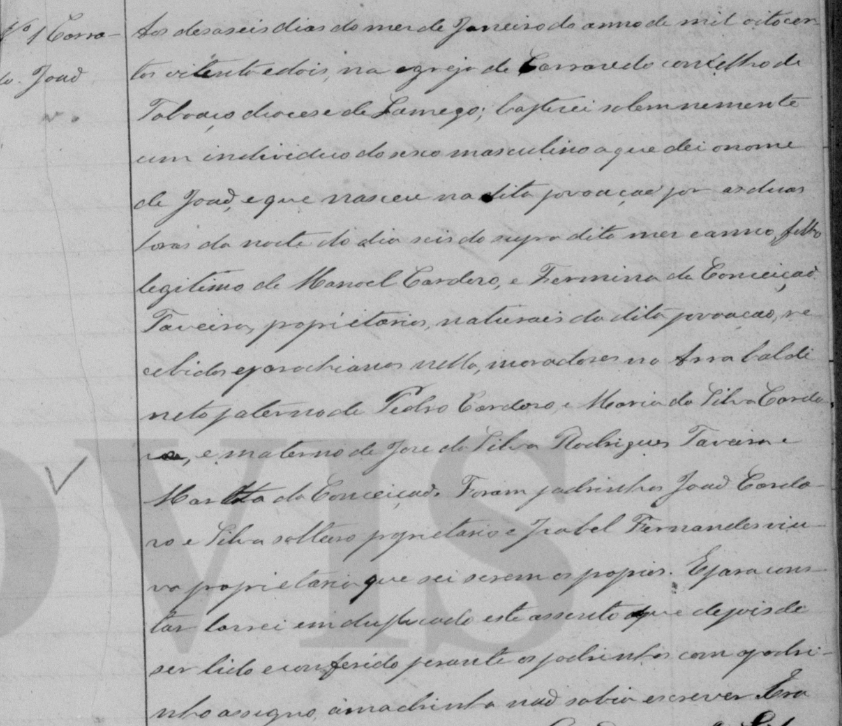 Nº 1 Carra-
do. João
Aos desaseis dias do mes de Janeiro do anno de mil oitocen-
tos oitenta e dois, na egreja de Carrazedo concelho de
Taboaço diocese de Lamego; baptizei solemnemente
um individuo do sexo masculino a que dei o nome
de João, e que nasceu na dita povoação por as duas
horas da noite do dia seis do supra dito mes e anno, filho
legitimo de Manoel Cardozo, e Fermina da Conceição
Taveira, proprietarios, naturais da dita povoação, re
cebidos e parochianos nella, moradores no Arrabalde
neto paterno de Pedro Cardozo, e Maria da Silva Cardo
, e materno de Jose da Silva Rodrigues Taveira e
da Conceição. Foram padrinhos João Cardo-
zo e Silva solteiro proprietario e Izabel Fernandes viu-
va proprietaria que sei serem os propios. E para cons-
tar lavrei em duplicado este assento que depois de
ser lido e conferido perante os padrinhos com o padri-
nho assigno, a madrinha não sabia escrever. Era
OVIS